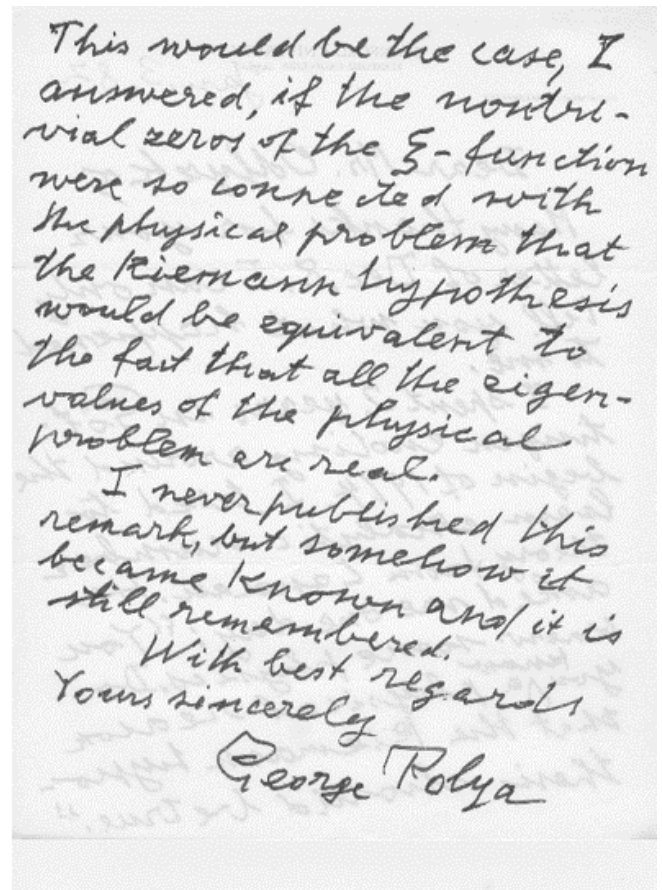 This would be the case, I
answered, if the nontri-
vial zeros of the ξ-function
were so connected with
the physical problem that
the Riemann hypothesis
would be equivalent to
the fact that all the eigen-
values of the physical
problem are real.
I never published this
remark, but somehow it
became known and it is
still remembered.
With best regards
Yours sincerely
George Polya